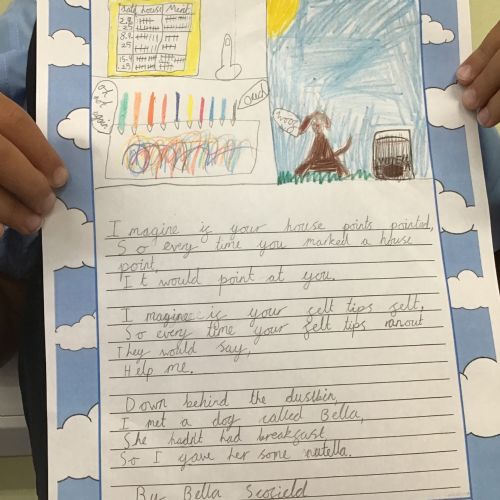 Date house Merit
2.9.
25
8.9.
25
15.9
25
oh not again
ouch
woof
I magine if your house points pointed,
So every time you marked a house
point,
It would point at you.
I magine if your felt tips felt,
So every time your felt tips ranout
They would say,
Help me.
Down behind the dustbin,
I met a dog called Bella,
She hadnt had breakfast.
So I gave her some nutella.
By Bella Scofield